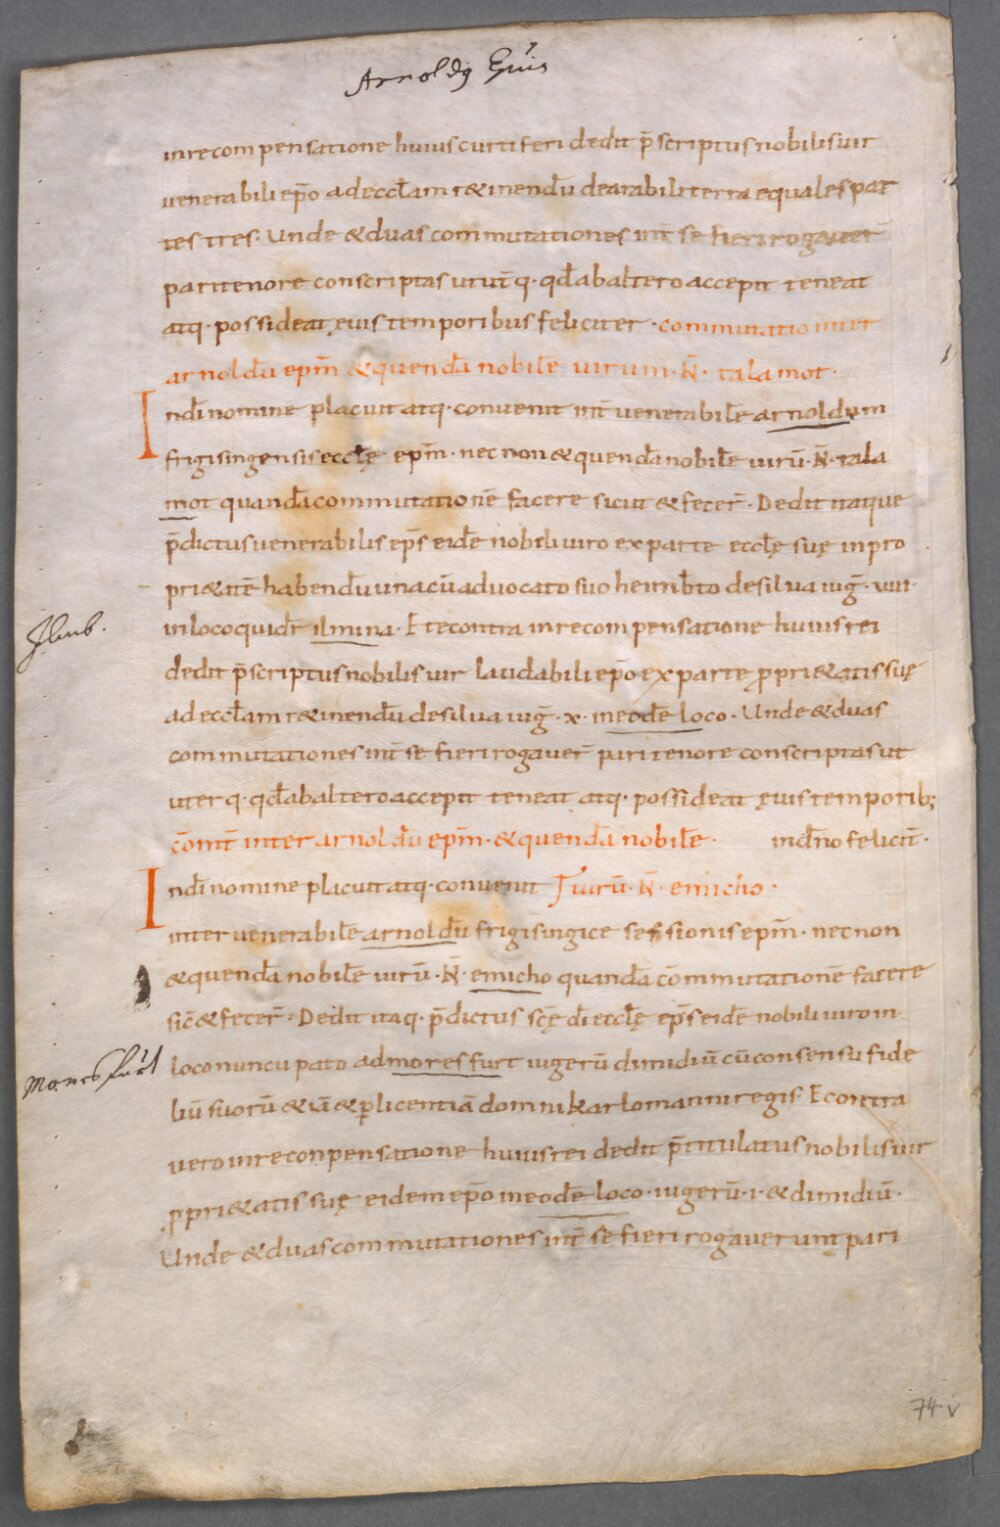 Arnoldꝯ Epūs
inrecompensatione huius curtiferi dedit p̄scriptus nobilis uir
uenerabili ep̄o ad eccƚam r&inendū dearabili terra equales par
tes tres. Unde & duas commutationes int̄ se fieri rogauer̄
pari tenore conscriptas ut ut̄q. qđ ab altero accepit teneat
atq. possideat ęuis temporibus feliciter. commutatio inter
arnoldū ep̄m & quendā nobilē uirum. N̄. talamot.
In dī nomine placuit atq. conuenit int̄ uenerabilē arnoldum
frigisingensis eccƚę ep̄m. nec non & quendā nobilē uirū. N̄. tala
mot quandā commutationē facere sicut & fecer̄. Dedit itaque
p̄dictus uenerabilis ep̄s eidē nobili uiro ex parte eccƚę suę in pro
pri&atē habendū una cū aduocato suo heimb̄to de silua iug̃. uiii.
in loco qui dr̄ ilmina. Et econtra in recompensatione huius rei
dedit p̄scriptus nobilis uir laudabili ep̄o ex parte ꝓpri&atis suę
ad eccƚam r&inendū de silua iug̃. x. in eodē loco. Unde & duas
commutationes int̄ se fieri rogauer̄ pari tenore conscriptas ut
uterq. qđ ab altero accepit teneat atq. possideat ęuis temporib;
cōmt̄ inter arnoldū ep̄m. & quendā nobilē. indr̄no felicit̄.
In dī nomine placuit atq. conuenit uirū. N̄. emicho.
inter uenerabilē arnoldū frigisingice sessionis ep̄m. nec non
& quendā nobilē uirū. N̄. emicho quandā cōmmutationē facere
sic̄ & fecer̄. Dedit itaq. p̄dictus scę dī eccƚę ep̄s eidē nobili uiro in
Jlmb.
loco nuncupato admores furt iugerū dimidiū cū consensu fide
Moresfurt
liū suorū & iā & ꝑ licentiā domni karlomanni regis. E contra
uero in reconpensatione huius rei dedit p̄titulatus nobilis uir
ꝓpri&atis suę eidem ep̄o in eodē loco. iugerū. i. & dimidiū.
Unde & duas commutationes int̄ se fieri rogauerunt pari
74 v